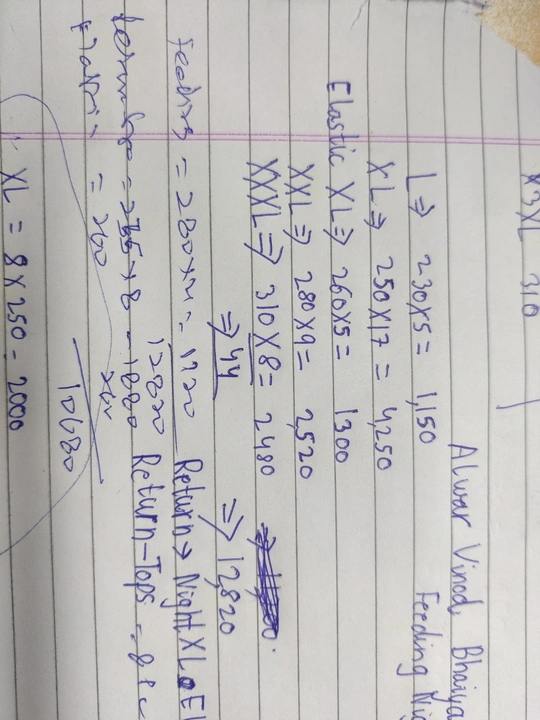 X3XL 310
Alwar Vinod, Bhaiya
Feeding Nig
L ⇒ 230×5 = 1,150
XL ⇒ 250×17 = 4,250
Elastic XL ⇒ 260×5 = 1300
XXL ⇒ 280×9 = 2,520
XXXL ⇒ 310×8 = 2480
⇒ 44 ⇒ 12,820
Feeding = 280×4 = 1120 Return → Night XL El
12820
= 235×8 - 1880 Return-Tops = 8
= 260
10680
XL = 8×250 = 2000